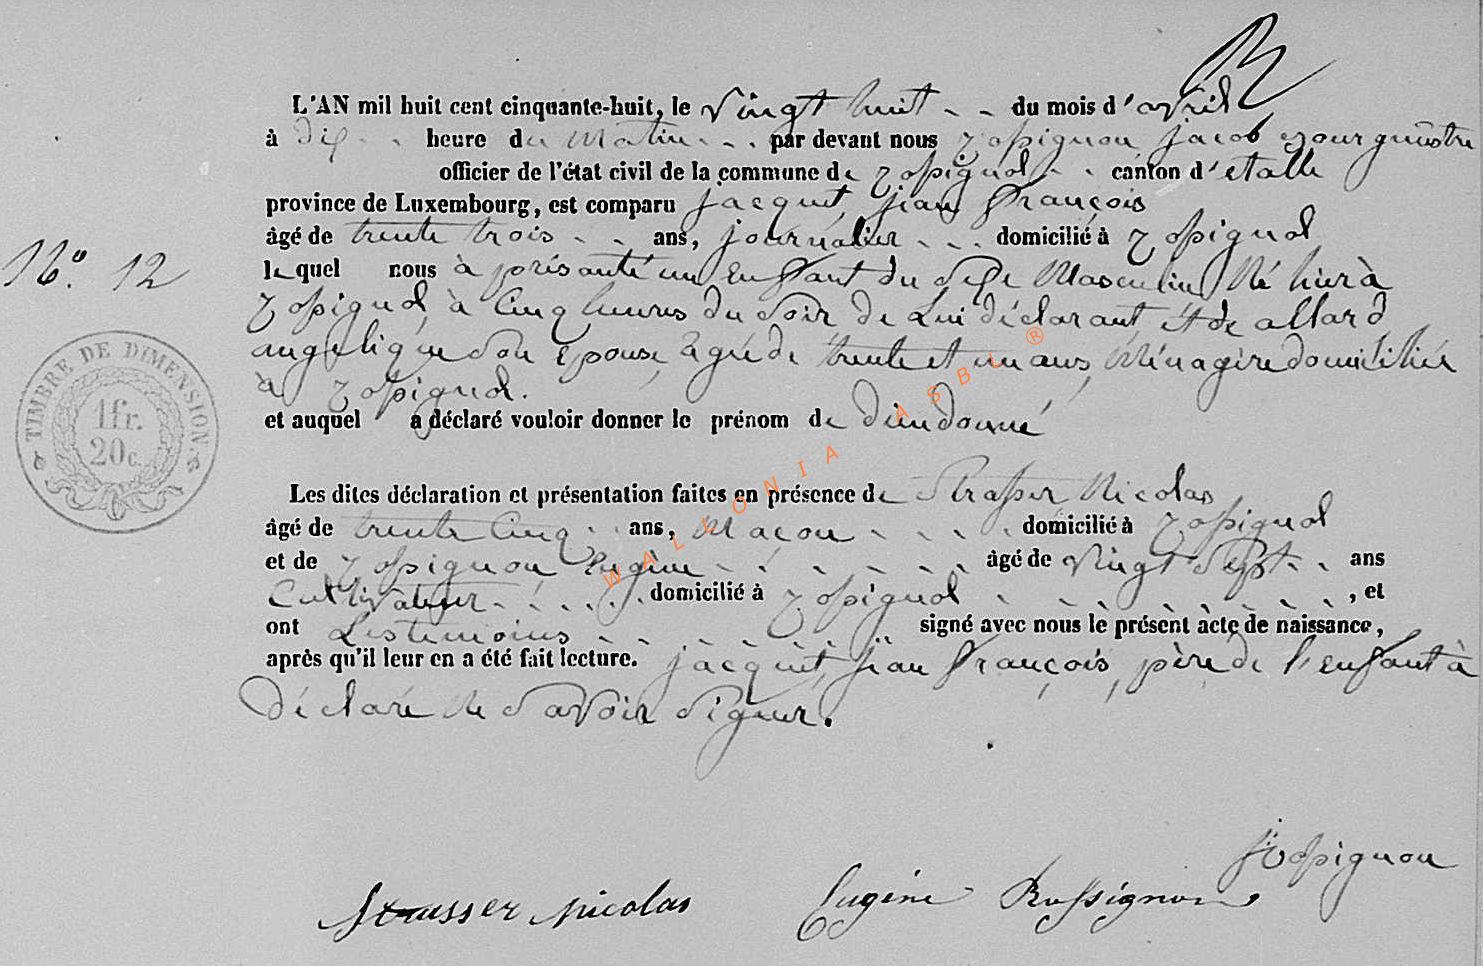 L'AN mil huit cent cinquante-huit, le vingt huit - - du mois d'avril
à dix - - heure du matin - - - par devant nous rossignon jacob bourguestre
officier de l'état civil de la commune de rossignol - - canton d'etalle
province de Luxembourg, est comparu jacquet, jean françois
âgé de trente trois - - ans, journalier - - - domicilié à rossignol
lequel nous à présanté un enfant du sexe Masculin Né hier à
N.° 12
rossignol, à Cinq heures du soir de Lui déclarant, et de allard
angelique son epouse, agée de trente et un ans, Ménagère domiciliée
à rossignol.
et auquel a déclaré vouloir donner le prénom de dieudonné
TIMBRE DE DIMENSION.
1fr.
20c.
Les dites déclaration et présentation faites en présence de Strasser Nicolas
âgé de trente Cinq - - ans, Maçon - - - - domicilié à rossignol
et de rossignon Eugène - - - - - - âgé de vingt sept - - ans
Cultivateur - - - - - domicilié à rossignol - - - - - - - , et
ont Les temoins - - - - - - signé avec nous le présent acte de naissance,
après qu'il leur en a été fait lecture. jacquet, jean françois, père de l'enfant à
déclaré Ne savoir signer.
WALLONIA ASBL ®
J rossignon
Strasser Nicolas Eugène Rossignon